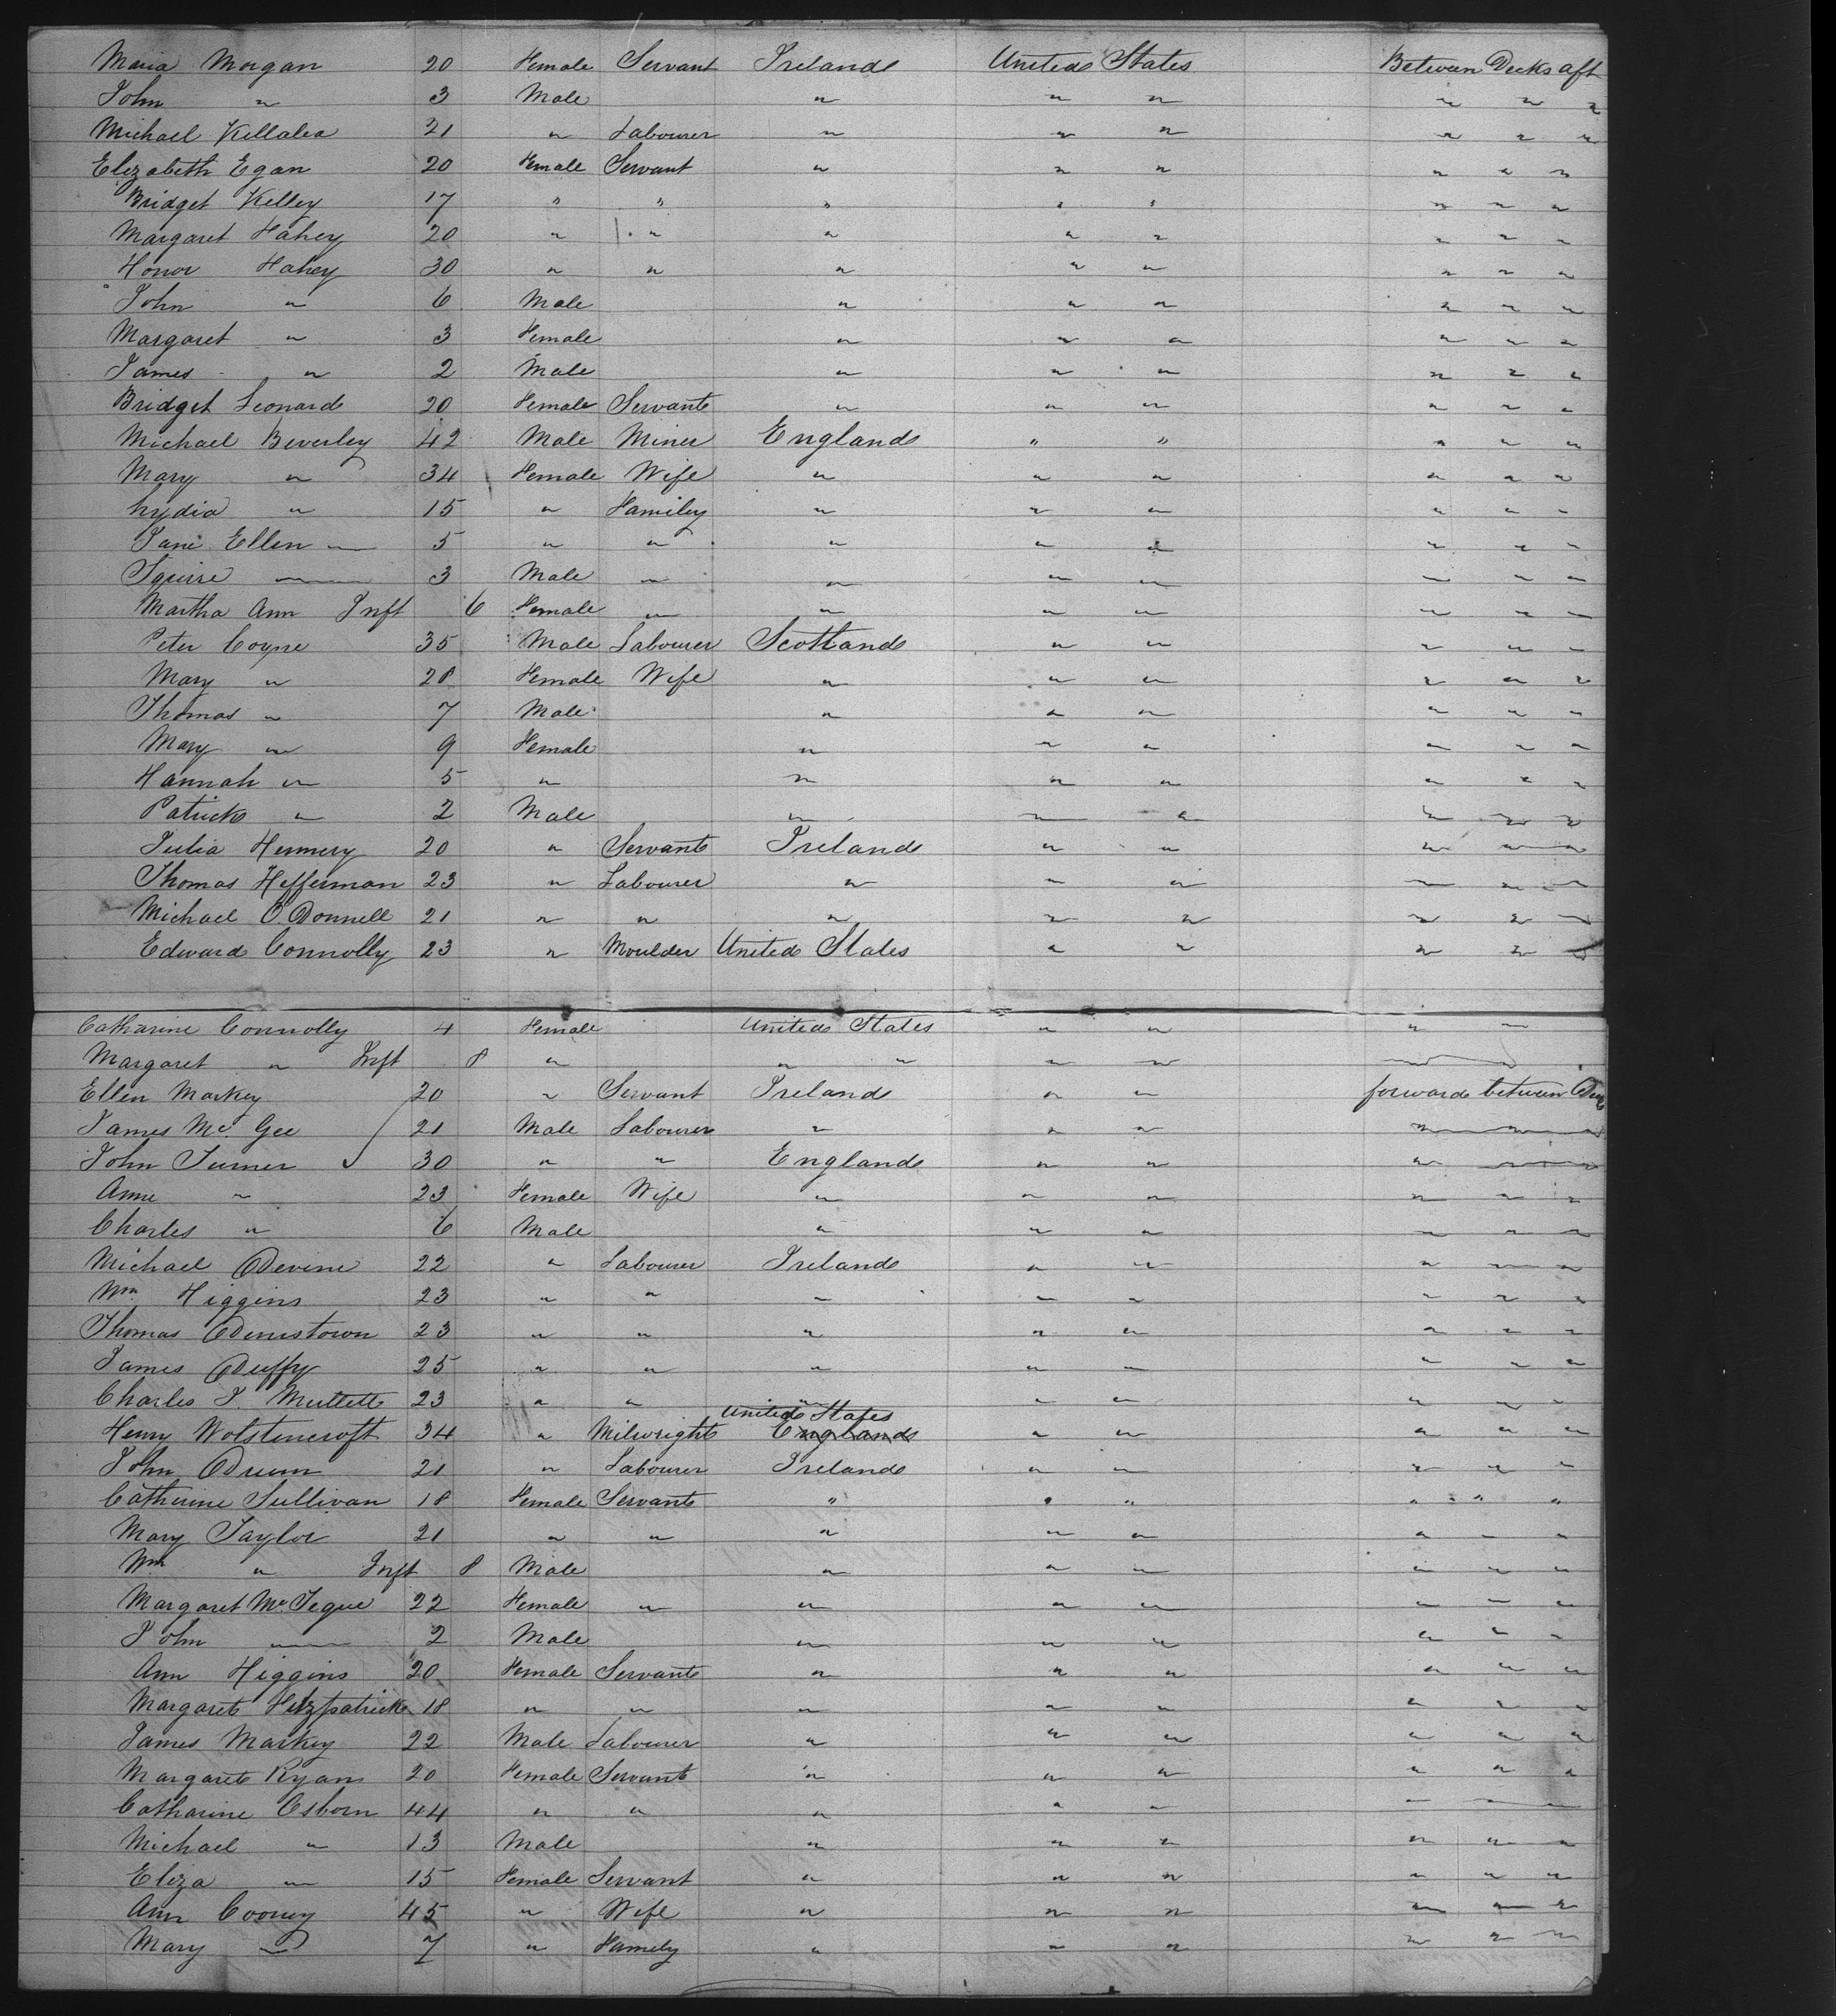 Maria Morgan 20 Female Servant Ireland United States Between Decks aft
John " 3 Male " " " " " "
Michael Killalea 21 " Labourer " " " " " "
Elizabeth Egan 20 Female Servant " " " " " "
Bridget Kelley 17 " " " " " " " "
Margaret Fahey 20 " " " " " " " "
Honor Fahey 30 " " " " " " " "
John " 6 Male " " " " " "
Margaret " 3 Female " " " " " "
James " 2 Male " " " " " "
Bridget Leonard 20 Female Servant " " " " " "
Michael Beverley 42 Male Miner England " " " " "
Mary " 34 Female Wife " " " " " "
Lydia " 15 " Familey " " " " " "
Jane Ellen " 5 " " " " " " " "
Squire " 3 Male " " " " " " "
Martha Ann Inft 6 Female " " " " " " "
Peter Coyne 35 Male Labourer Scotland " " " " "
Mary " 28 Female Wife " " " " " "
Thomas " 7 Male " " " " " "
Mary " 9 Female " " " " " "
Hannah " 5 " " " " " " "
Patrick " 2 Male " " " " " "
Julia 20 " Servant Ireland " " " " "
Thomas Hefferman 23 " Labourer " " " " " "
Michael O'Donnell 21 " " " " " " " "
Edward Connolly 23 " Moulder United States " " " " "
Catharine Connolly 4 Female United States " " " "
Margaret " Inft 8 " " " " " "
Ellen Markey 20 " Servant Ireland " " forward between Decks
James Mc Gee 21 Male Labourer " " " " " "
John Turner 30 " " England " " " " "
Anne " 23 Female Wife " " " " " "
Charles " 6 Male " " " " " "
Michael Devine 22 " Labourer Ireland " " " " "
Wm Higgins 23 " " " " " " " "
Thomas Denistown 23 " " " " " " " "
James Duffy 25 " " " " " " " "
Charles J. Mullett 23 " " " " " " " "
United States
Henry Wolstencroft 34 " Milwright England " " " " "
John Drum 21 " Labourer Ireland " " " " "
Catherine Sullivan 18 Female Servant " " " " " "
Mary Taylor 21 " " " " " " " "
Wm " Inft 8 Male " " " " " "
Margaret Mc Tegue 22 Female " " " " " " "
John " 2 Male " " " " " "
Ann Higgins 20 Female Servant " " " " " "
Margaret Fitzpatrick 18 " " " " " " " "
James Markey 22 Male Labourer " " " " " "
Margaret Ryan 20 Female Servant " " " " " "
Catharine Osborn 44 " " " " " " " "
Michael " 13 Male " " " " " "
Eliza " 15 Female Servant " " " " " "
Ann Cooney 45 " Wife " " " " " "
Mary " 7 " Famely " " " " " "